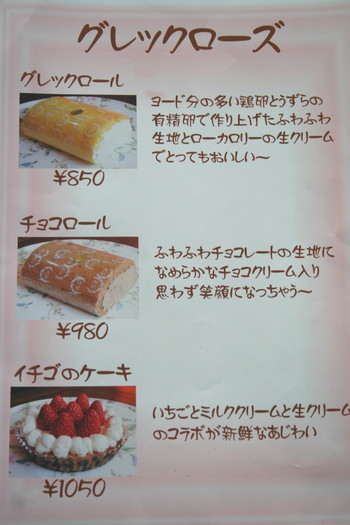 グレックローズ
グレックロール
ヨード分の多い鶏卵とうずらの
有精卵で作り上げたふわふわ
生地とローカロリーの生クリーム
でとってもおいしい〜
¥850
チョコロール
ふわふわチョコレートの生地に
なめらかなチョコクリーム入り
思わず笑顔になっちゃう〜
¥980
イチゴのケーキ
いちごとミルククリームと生クリーム
のコラボが新鮮なあじわい
¥1050